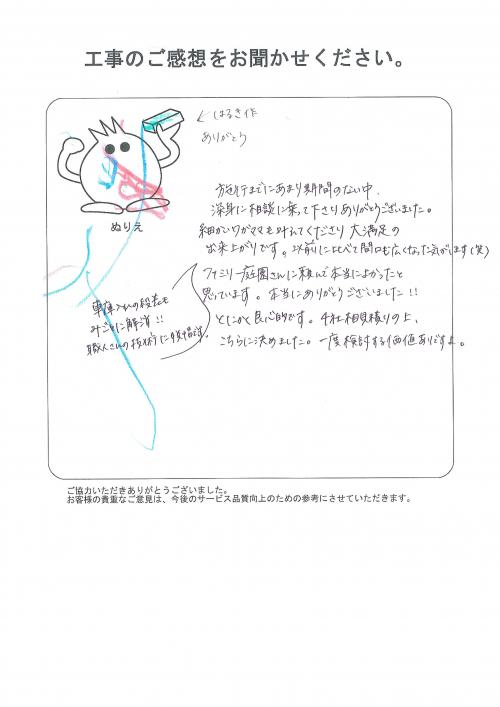 工事のご感想をお聞かせください。
← はるき作
ありがとう
ぬりえ
施行までにあまり期間のない中、
深身に相談に乗って下さりありがとうございました。
細かいワガママを叶えてくださり大満足の
出来上がりです。以前に比べて間口も広くなった気がします(笑)
ファミリー庭園さんに頼んで本当によかったと
思っています。本当にありがとうございました!!
とにかく良心的です。4社相見積りの上、
こちらに決めました。一度検討する価値ありですよ。
車庫入れの段差も
みごとに解消!!
職人さんの技術に感謝です。
ご協力いただきありがとうございました。
お客様の貴重なご意見は、今後のサービス品質向上のための参考にさせていただきます。